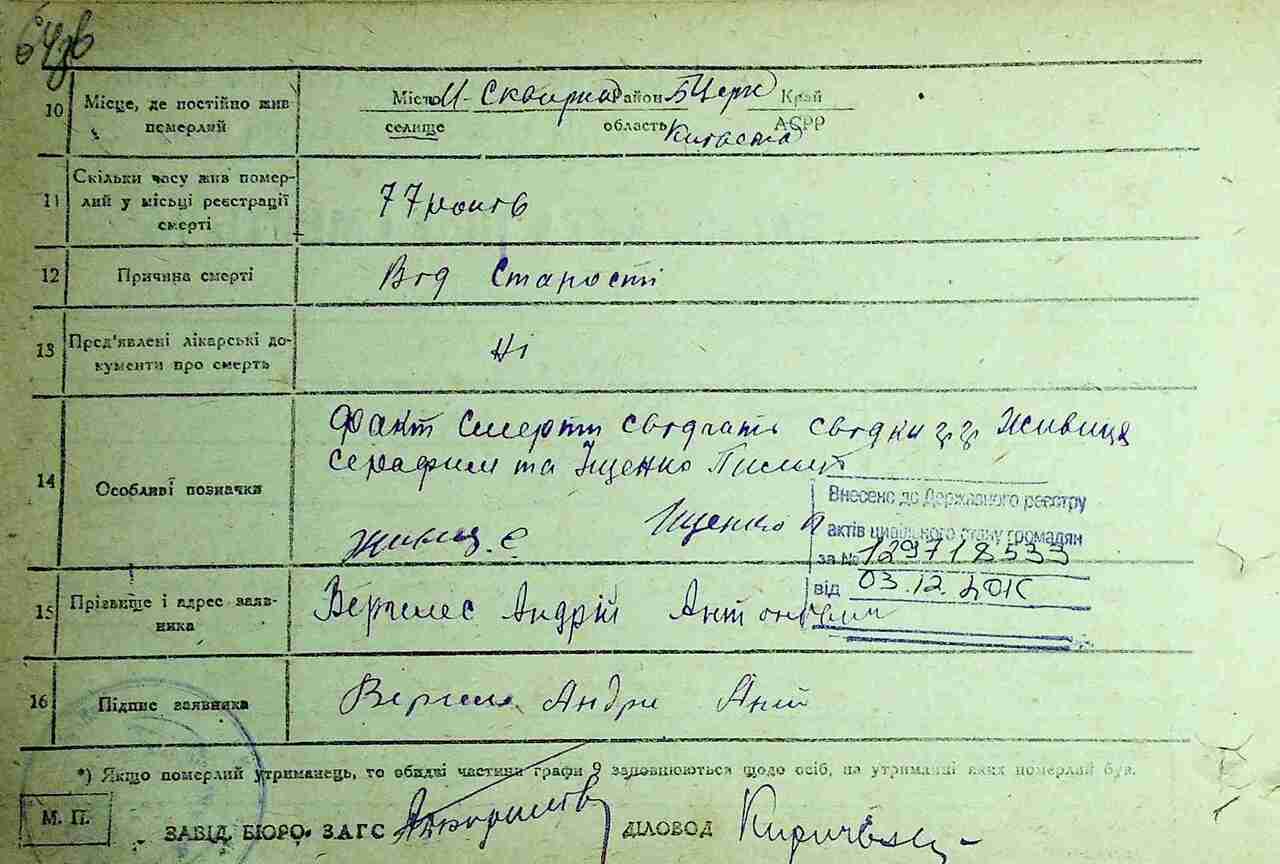 10 Місце, де постійно жив померлий
Місто М. Сквирка Район Б Церк Край
селище область Київська АСРР
11 Скільки часу жив померлий у місці реєстрації смерті
77 років
12 Причина смерті
Від Старості
13 Пред'явлені лікарські документи про смерть
Ні
14 Особливі позначки
Факт Смерти свідчать свідки гр гр Живиця
Серафим та Іщенко
Іщенко П
Внесено до Державного реєстру
актів цивільного стану громадян
за № 129718533
від 03.12.
15 Прізвище і адрес заявника
Вергелес Андрій Антонович
16 Підпис заявника
Вергелес Андрій Ант
*) Якщо померлий утриманець, то обидві частини графи 9 заповнюються щодо осіб, на утриманні яких померлий був.
М. П.
ЗАВІД. БЮРО ЗАГС ДІЛОВОД